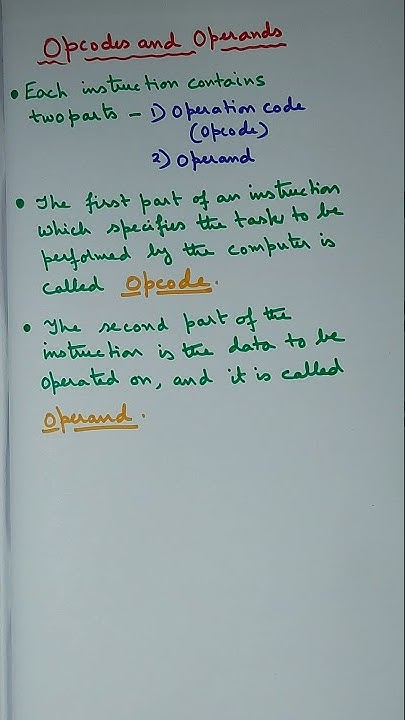 Opcodes and Operands
• Each instruction contains
two parts - 1) Operation code
(Opcode)
2) Operand
• The first part of an instruction
which specifies the task to be
performed by the computer is
called Opcode.
• The second part of the
instruction is the data to be
operated on, and it is called
Operand.